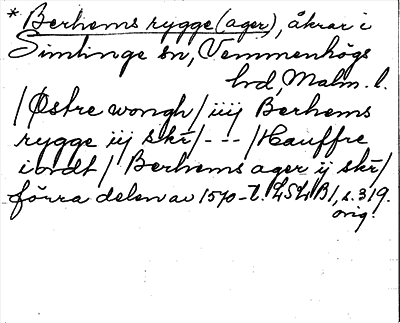 * Berhems rygge (ager), åkrar i
Simlinge sn, Vemmenhögs
hd, Malm. l.
/Østre wongh/ iiij Berhems
rygge iij skr/ - - - /Hauffre
iordt/ Berhems ager ij skr/
förra delen av 1570-t. LSLB1, s. 319.
orig.